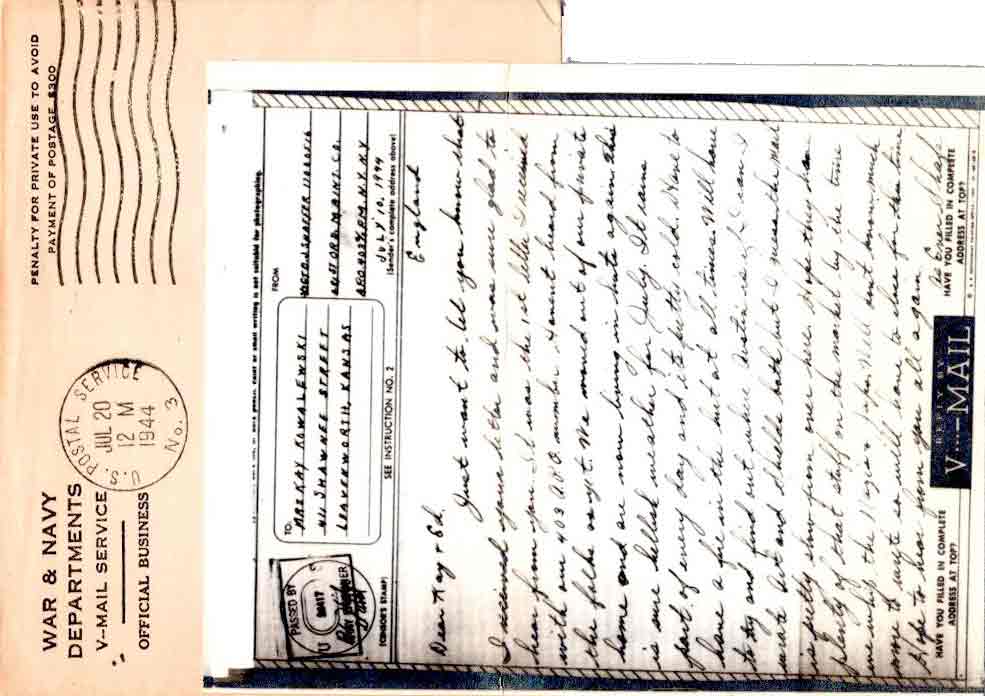 PENALTY FOR PRIVATE USE TO AVOID
PAYMENT OF POSTAGE $300
U.S. POSTAL SERVICE
JUL 20
12 M
1944
No. 3
WAR & NAVY
DEPARTMENTS
V-MAIL SERVICE
OFFICIAL BUSINESS
PASSED BY
ARMY EXAMINER
(CENSOR'S STAMP)
TO:
MR & KAY KOWALEWSKI
411 SHAWNEE STREET
LEAVENWORTH KANSAS
SEE INSTRUCTION NO. 2
FROM
SHAFFER
ORD. MAINT. CO.
A.P.O. 403 % P.M. N.Y. N.Y
JULY 10, 1944
(Sender's complete address above)
England
Dear Kay & Ed.
Just want to let you know that
I received your letter and was sure glad to
hear from you. It was the 1st letter I received
with our 403 A.P.O number. Havent heard from
the folks as yet. We moved out of our private
home and are now living in huts again this
is sure a hell of weather for July. It rains
part of every day and its pretty cold. Have to
have a fire in the hut at all times. Will have
to try and find out where Austin is if I can. I
wrote Dot and Shells both but I guess the mail
is pretty slow from over here. Hope they have
plenty of that stuff on the market by the time
we whip the Nazis & Japs. Well dont know much
more to write so will have to close for this time
Hope to hear from you all again.
HAVE YOU FILLED IN COMPLETE
ADDRESS AT TOP?
REPLY BY
V···—MAIL
HAVE YOU FILLED IN COMPLETE
ADDRESS AT TOP?